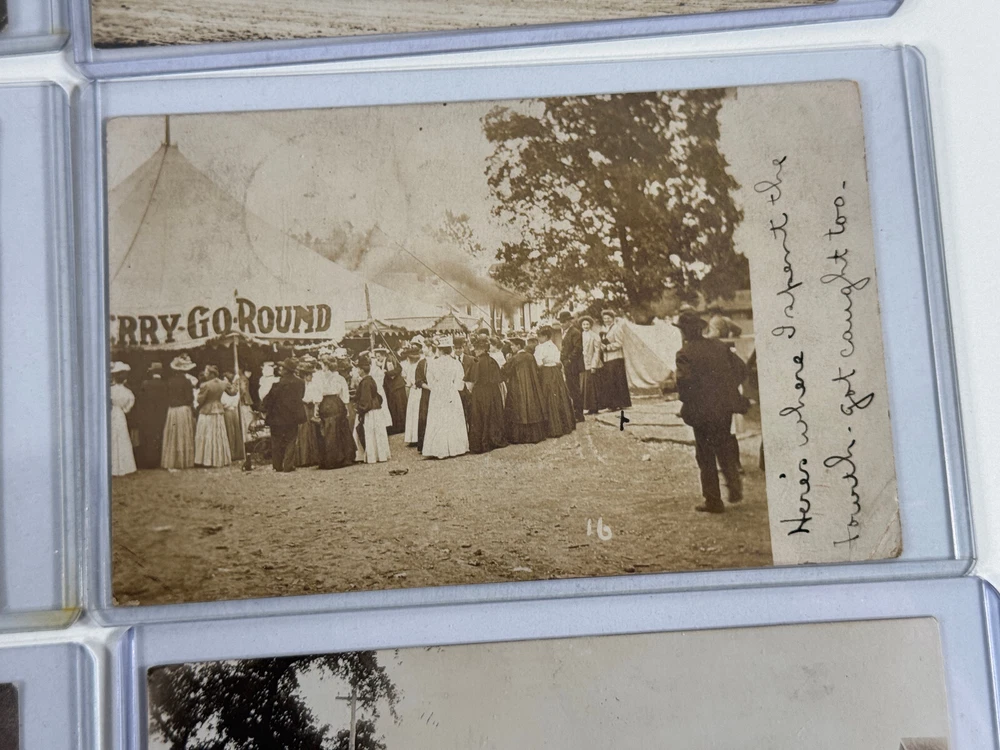 ERRY-GO-ROUND
16
Here's where I spent the
fourth - got caught too.